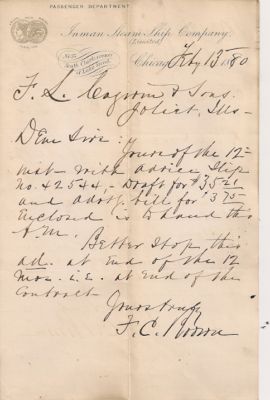 PASSENGER DEPARTMENT
Inman Steam Ship Company,
(Limited)
Chicago, Feby 13 1880
F. L. Cagwin & Sons.
Joliet, Ills-
Dear Sirs: Yours of the 12-
inst- with advice slip
no. 42544,- Draft for $35 21
and advtg. bill for $3 75
Enclosed is @ hand this
A.M.
Better Stop this
ad. at End of the 12
Mos. i.e. at End of the
Contract-
Yours truly
F. C. Brown